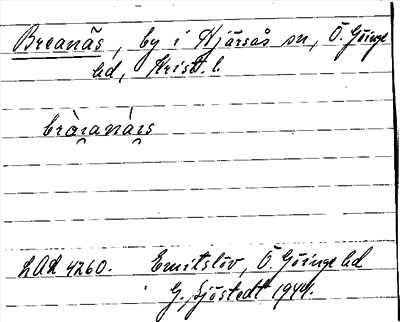 Breanäs, by i Hjärsås sn, Ö. Göinge
hd, Krist. l.
brẹ̀ranàrs
LAL 4260. Emitslöv, Ö. Göinge hd
G. Sjöstedt 1944.